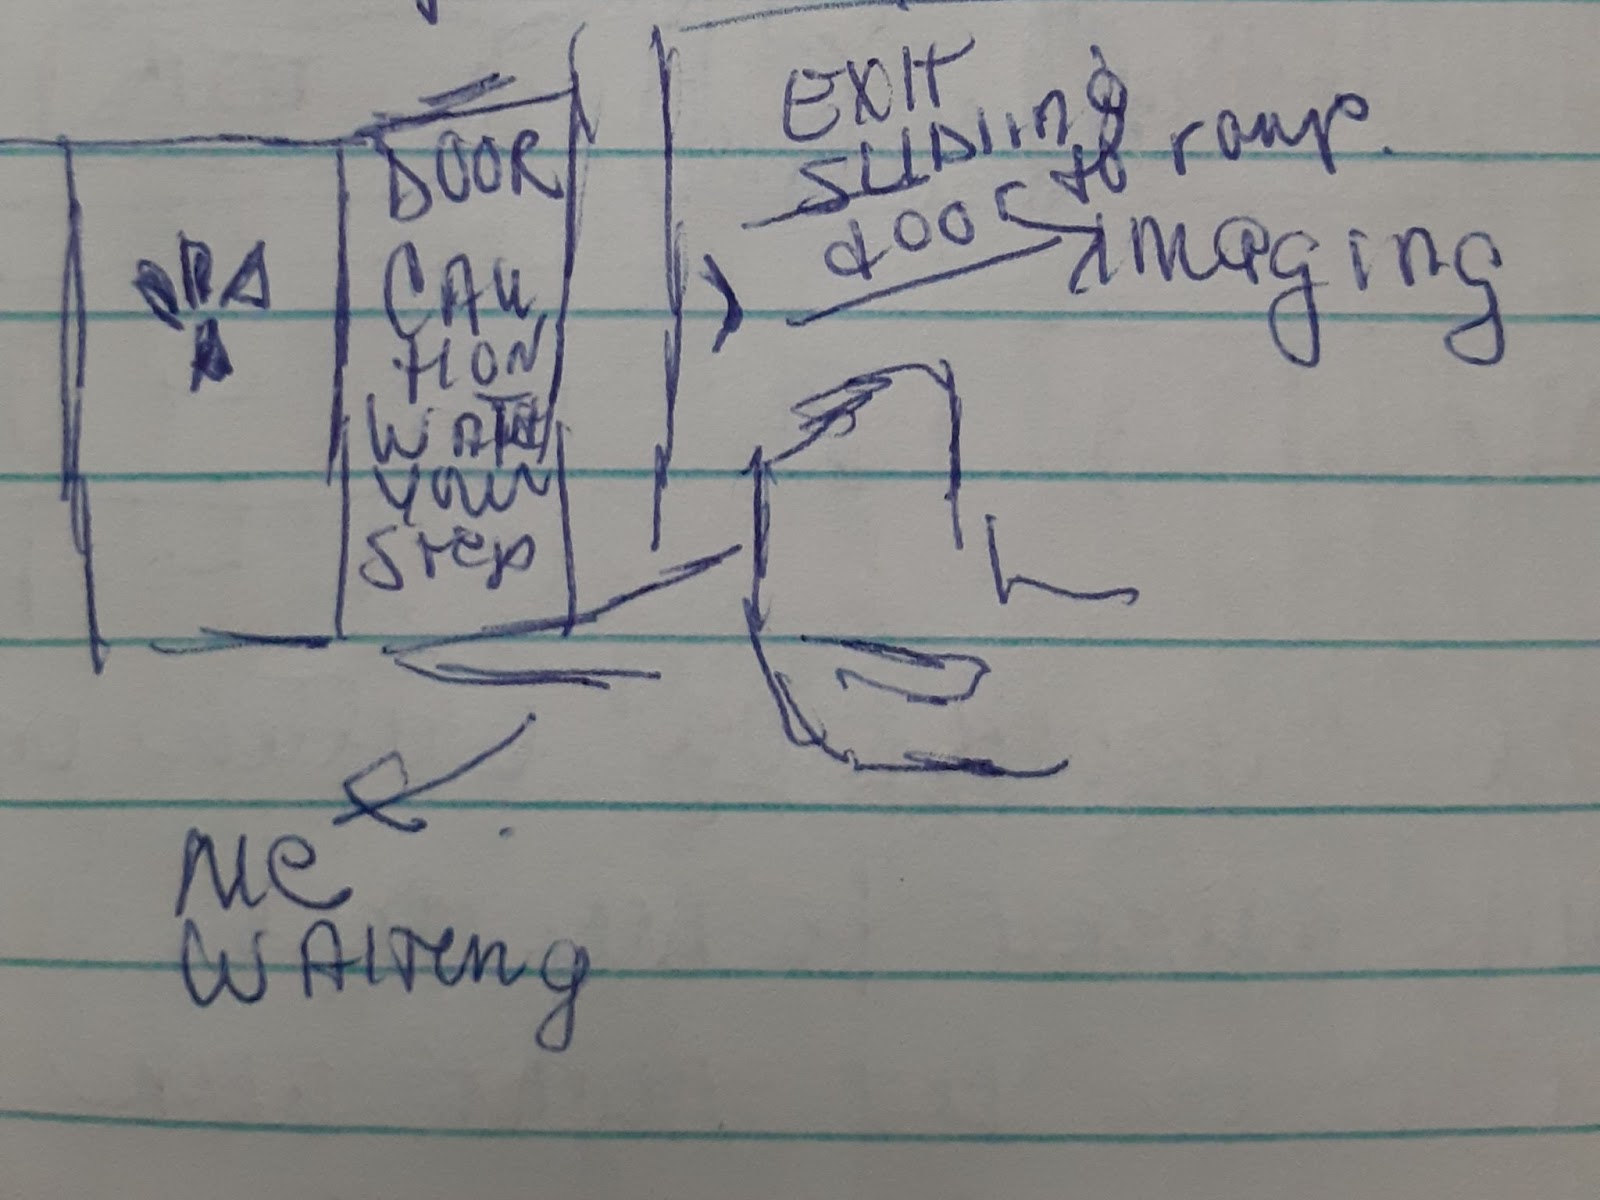 DOOR
CAU
TION
WATCH
YOUR
STEP
EXIT
SLIDIING
door to ramp.
imaging
ME
WAITENG